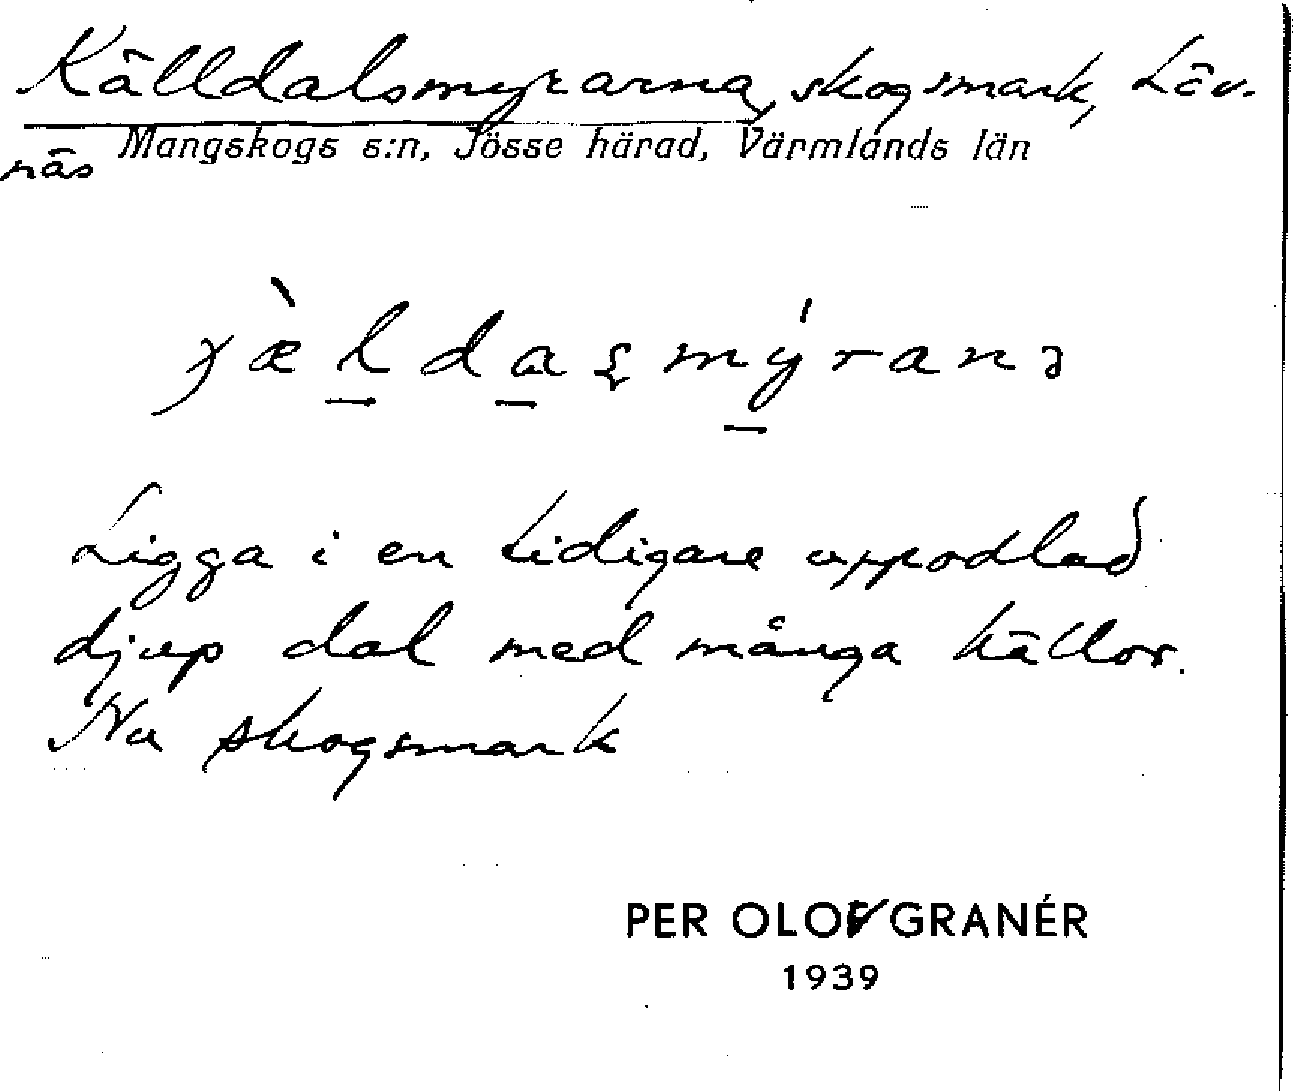 Källdalsmyrarna, skogsmark, Läv-
näs Mangskogs s:n, Jösse härad, Värmlands län
Ligga i en tidigare uppodlad
djup dal med många källor.
Nu skogsmark
PER OLOV GRANÉR
1939